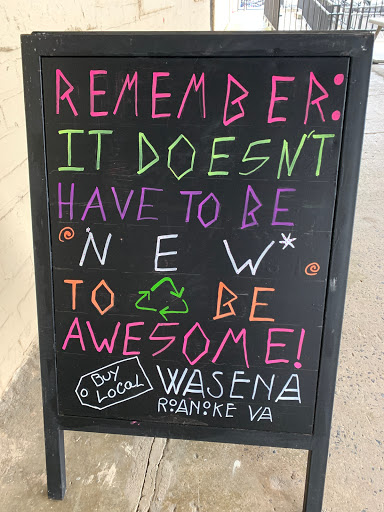 REMEMBER:
IT DOESN'T
HAVE TO BE
*NEW*
TO BE
AWESOME!
BUY
LOCAL
WASENA
ROANOKE VA